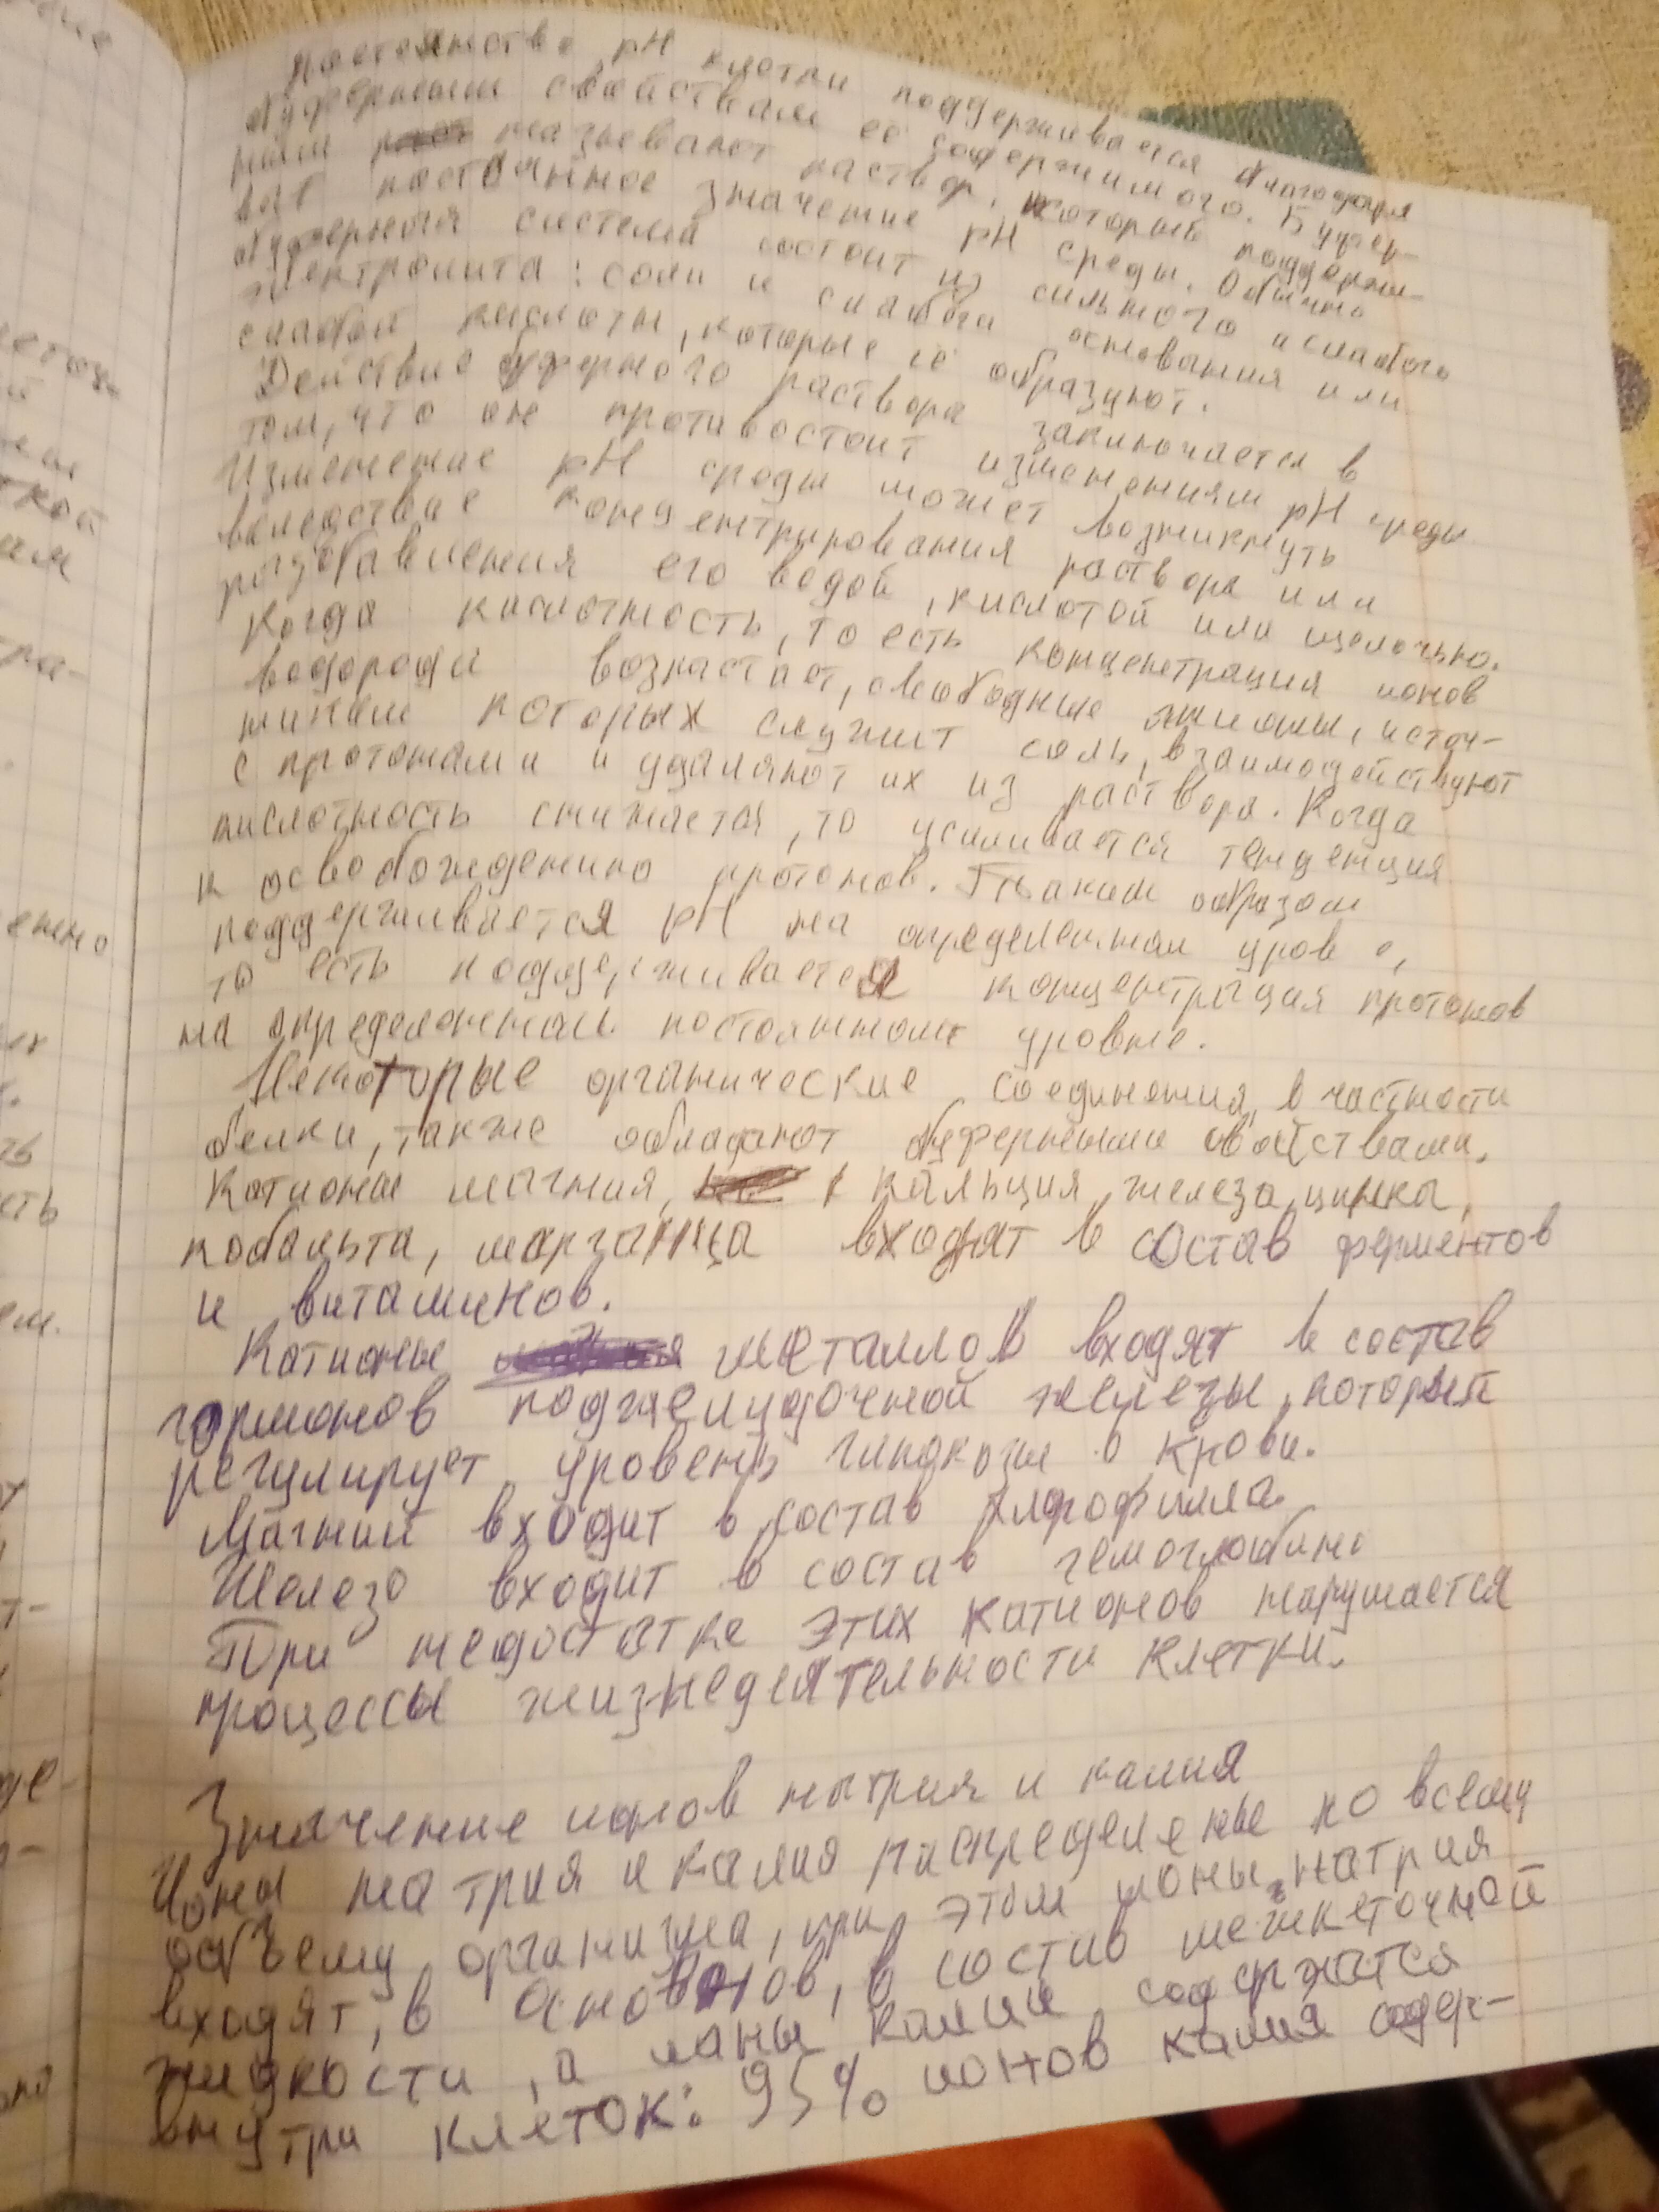 Постоянство pH клетки поддерживается благодаря
буферным свойствам её содержимого. Буфер-
ным называют раствор, который поддержи-
вает постоянное значение pH среды. Обычно
буферная система состоит из сильного и слабого
электролита: соли и слабого основания или
слабой кислоты, которые её образуют.
Действие буферного раствора заключается в
том, что он противостоит изменениям pH среды
Изменение pH среды может возникнуть
вследствие концентрирования раствора или
разбавления его водой, кислотой или щелочью.
Когда кислотность, то есть концентрация ионов
водорода возрастает, свободные анионы, источ-
ником которых служит соль, взаимодействуют
с протонами и удаляют их из раствора. Когда
кислотность снижается, то усиливается тенденция
к освобождению протонов. Таким образом
поддерживается pH на определенном
то есть поддерживается концентрация протонов
на определенном постоянном уровне.
Некоторые органические соединения, в частности
белки, также обладают буферными свойствами.
Катионы магния, кальция, железа, цинка,
кобальта, марганца входят в состав ферментов
и витаминов.
Катионы металлов входят в состав
гормонов поджелудочной железы, который
регулирует уровень глюкозы в крови.
Магний входит в состав хлорофилла.
Железо входит в состав гемоглобина
При недостатке этих катионов нарушается
процессы жизнедеятельности клетки.
Значение ионов натрия и калия
Ионы натрия и калия распределены по всему
объему организма, при этом ионы натрия
входят, в основном, в состав межклеточной
жидкости, а ионы калия содержатся
внутри клеток: 95% ионов калия содер-